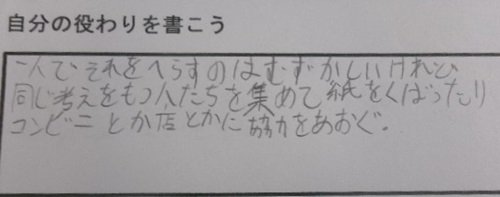 自分の役わりを書こう
一人で、それをへらすのはむずかしいけれど、
同じ考えをもつ人たちを集めて紙をくばったり
コンビニとか店とかに協力をあおぐ。